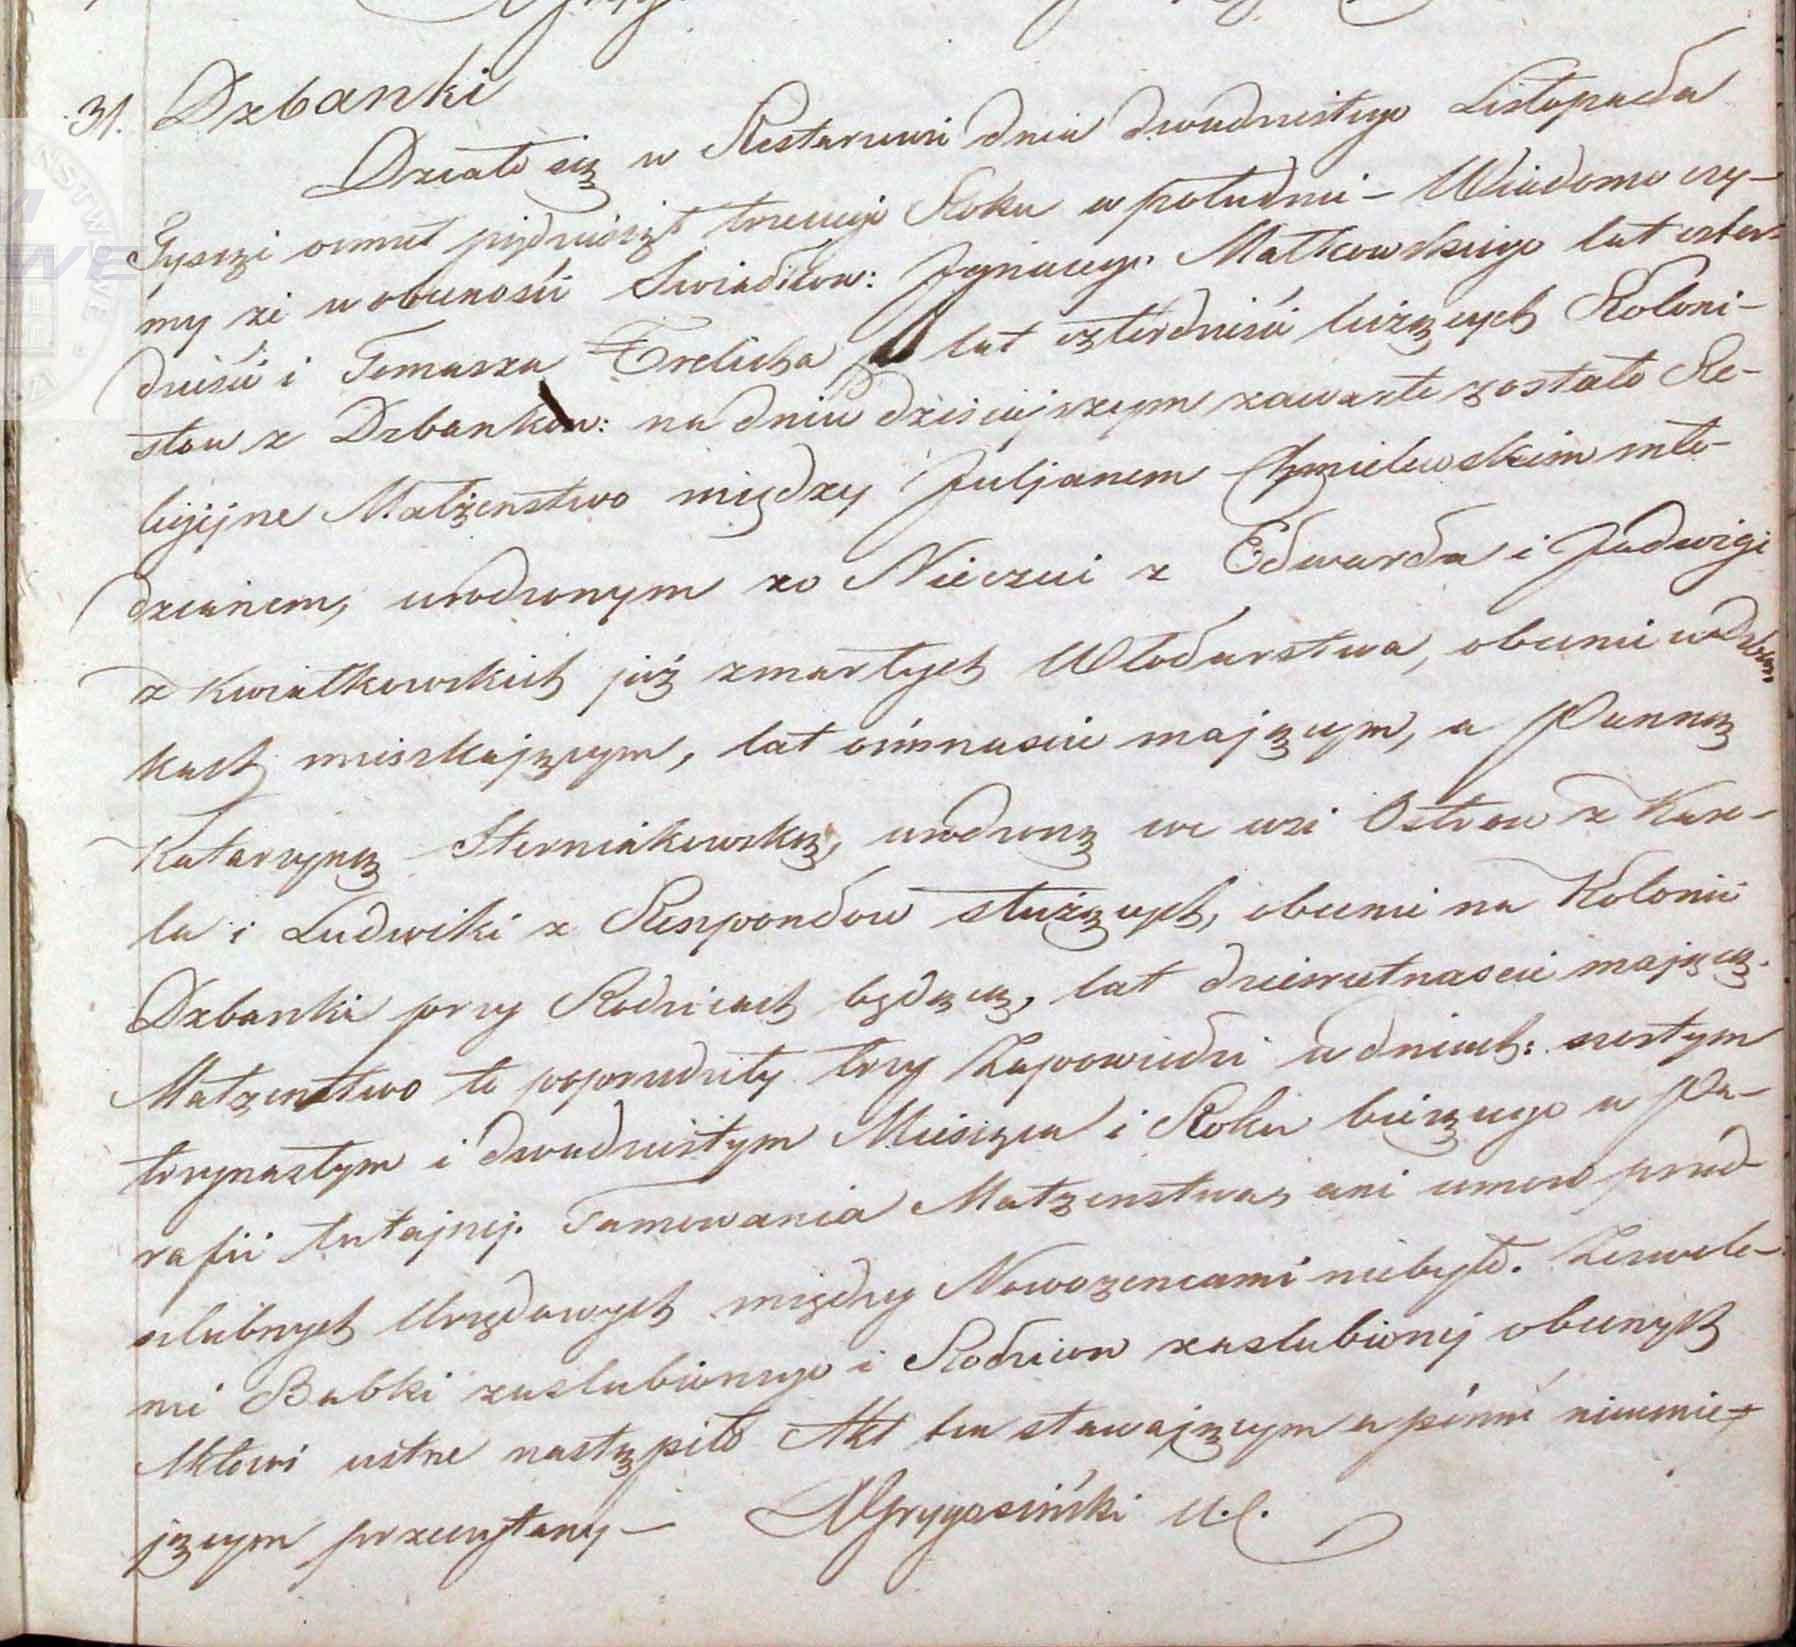 31. Dzbanki
Działo się w Restarzewi dnia dwudziestego Listopada
Tysiąc ośmset pięćdziesiąt trzeciego Roku w południe – Wiadomo czy-
my że w obecności Świadków: Ignacego Małkowskiego lat czter-
dzieści i Tomasza Frelicha lat czterdzieści liczących Koloni-
stów z Dzbanków: na dniu dzisiejszym zawarte zostało Re-
ligijne Małżeństwo między Juljanem Chmielewskim mło-
dzianem, urodzonym w Nieczui z Edwarda i Jadwigi
z Kwiatkowskich już zmarłych Włodarstwa, obecnie w Dzban-
kach mieszkającym, lat ośmnaście mającym, a Panną
Katarzyną Sterniakowską, urodzoną we wsi Ostrow z Karo-
la i Ludwiki z Respondów służących, obecnie na Kolonii
Dzbanki przy Rodzicach będącą, lat dziewiętnaście mającą.
Małżeństwo to poprzedziły trzy Zapowiedzi w dniach: szostym
trzynastym i dwudziestym Miesiąca i Roku bieżącego w Pa-
rafii tutajszej. Tamowania Małżeństwa, ani umow przed-
ślubnych Urzędowych między Nowożencami niebyło. Zezwole-
nie Babki zaślubionego i Rodziców zaslubionej obecnych
Aktowi ustne nastąpiło Akt ten stawającym a pisać nieumie-
jącym przeczytany – Grygosiński U.C.